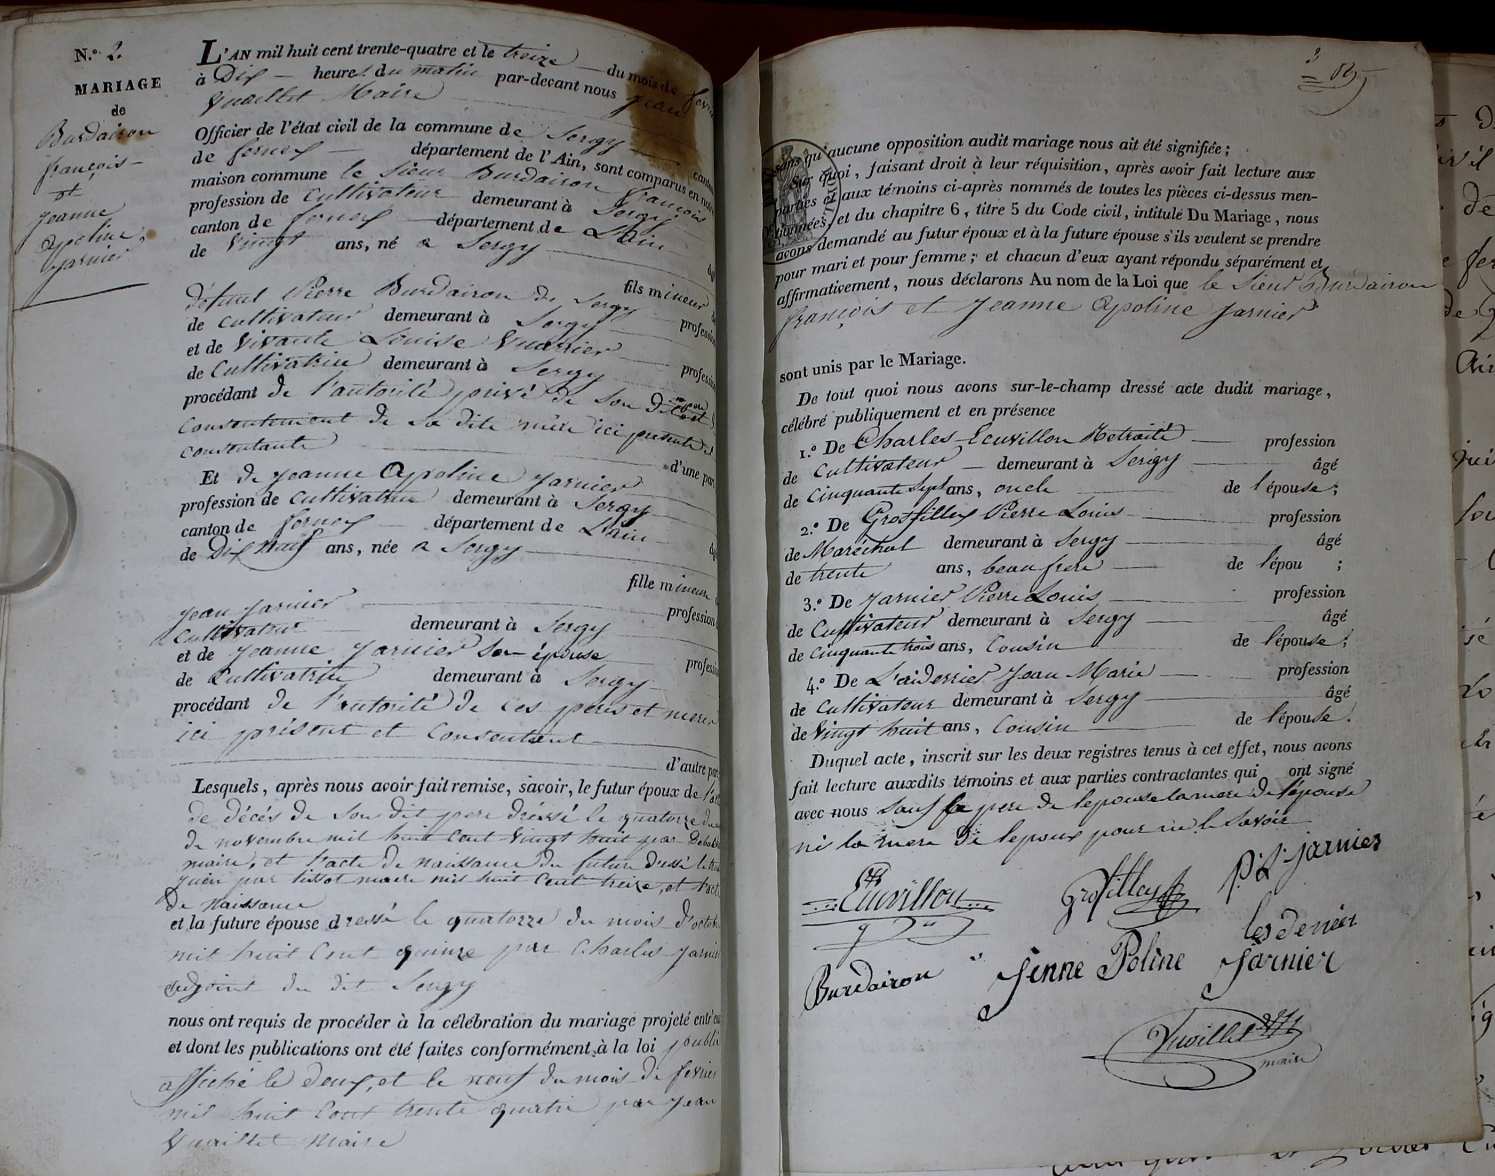 N.º 2
MARIAGE
de
Burdairon
françois
et
Jeanne
Apoline
Jarnier
L'AN mil huit cent trente-quatre et le treize du mois de fevrier
à Dix heures du matin par-devant nous Jean
Vuaillet Maire
Officier de l'état civil de la commune de Sergy canton
de fernex département de l'Ain, sont comparus en notre
maison commune le Sieur Burdairon françois
profession de cultivateur demeurant à Sergy
canton de fernex département de L'ain
de Vingt ans, né a Sergy
fils mineur
défunt Pierre Burdairon de Sergy
de cultivateur demeurant à Sergy profession
et de Vivante Louise Vuarrier
de Cultivatrice demeurant à Sergy profession
procédant de l'autorité privé de Son
consentement de Sa dite mère ici présente et
consentante
d'une part
Et de Jeanne Apoline Jarnier
profession de cultivatrice demeurant à Sergy
canton de fernex département de L'ain
de Dix neuf ans, née a Sergy
fille mineure
Jean Jarnier profession
Cultivateur demeurant à Sergy
et de Jeanne Jarnier Son épouse
de Cultivatrice demeurant à Sergy profession
procédant de l'autorité de ces pere et mere
ici présent et Consentent
d'autre part
Lesquels, après nous avoir fait remise, savoir, le futur époux de l'acte
de décés de Son dit pere dressé le quatorze du
de novembre mil huit Cent Vingt huit par
maire, et l'acte de naissance du future dressé le
juin par tissot maire mil huit Cent treize, et l'acte
de naissance
et la future épouse dressé le quatorze du mois d'octobre
mil huit Cent quinze par Charles Jarnier
adjoint du dit Sergy
nous ont requis de procéder à la célébration du mariage projeté entr'eux
et dont les publications ont été faites conformément à la loi publié
affiché le deux, et le neuf du mois de fevrier
mil huit Cent trente quatre par Jean
Vuaillet Maire
3
sans qu'aucune opposition audit mariage nous ait été signifiée;
Sur quoi, faisant droit à leur réquisition, après avoir fait lecture aux
parties et aux témoins ci-après nommés de toutes les pièces ci-dessus men-
tionnées, et du chapitre 6, titre 5 du Code civil, intitulé Du Mariage, nous
avons demandé au futur époux et à la future épouse s'ils veulent se prendre
pour mari et pour femme; et chacun d'eux ayant répondu séparément et
affirmativement, nous déclarons Au nom de la Loi que le Sieur Burdairon
françois et Jeanne Apoline Jarnier
sont unis par le Mariage.
De tout quoi nous avons sur-le-champ dressé acte dudit mariage,
célébré publiquement et en présence
1.º De Charles Ecuvillon Retraité profession
de Cultivateur demeurant à Sergy âgé
de Cinquante Sept ans, oncle de l'épouse;
2.º De Grosfilley Pierre Louis profession
de Maréchal demeurant à Sergy âgé
de trente ans, beau frere de l'épou ;
3.º De Jarnier Pierre Louis profession
de Cultivateur demeurant à Sergy âgé
de Cinquante trois ans, Cousin de l'épouse;
4.º De Laiderrier Jean Marie profession
de Cultivateur demeurant à Sergy âgé
de Vingt huit ans, Cousin de l'épouse.
Duquel acte, inscrit sur les deux registres tenus à cet effet, nous avons
fait lecture auxdits témoins et aux parties contractantes qui ont signé
avec nous Sauf le pere de l'epouse la mere de l'épouse
ni la mere de l'epoux pour ne le Savoir
Ecuvillon
Grosfilley
P. L. Jarnier
Burdairon
Jenne Poline Jarnier
Vuaillet
maire